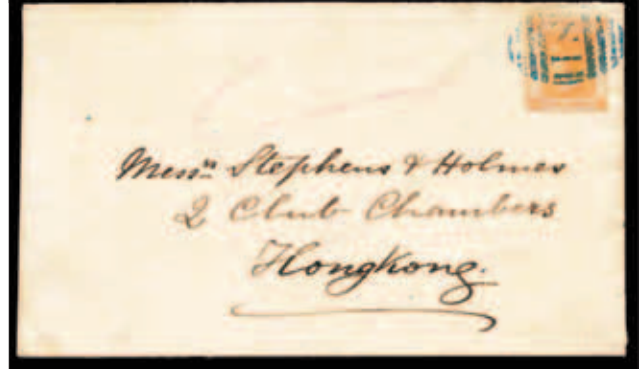 Messrs Stephens & Holmes
2 Club Chambers
HongKong.